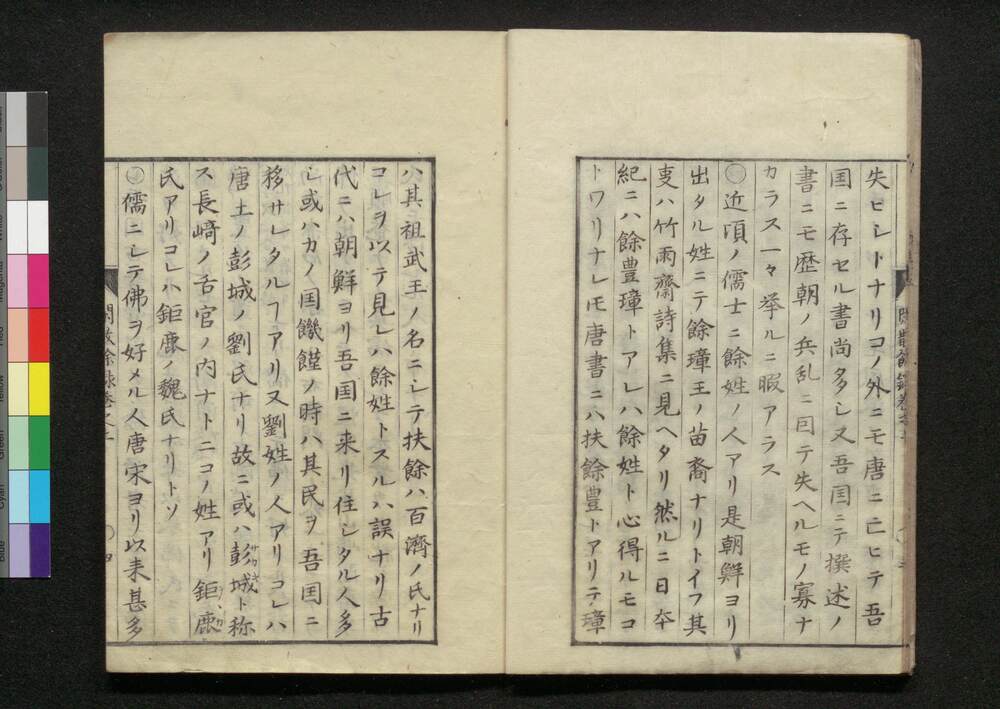 失ヒシトナリコノ外ニモ唐ニ亡ヒテ吾
国ニ存セル書尚多シ又吾国ニテ撰述ノ
書ニモ歴朝ノ兵乱ニ回テ失ヘルモノ寡ナ
カラス一々挙ルニ暇アラス
〇近頃ノ儒士ニ餘姓ノ人アリ是朝鮮ヨリ
出タル姓ニテ餘璋王ノ苗裔ナリトイフ其
叓ハ竹雨齋詩集ニ見ヘタリ然ルニ日夲
紀ニハ餘豊璋トアレハ餘姓ト心得ルモコ
トワリナレ𪜈唐書ニハ扶餘豊トアリテ璋
ハ其祖武王ノ名ニシテ扶餘ハ百濟ノ氏ナリ
コレヲ以テ見レハ餘姓トスルハ誤ナリ古
代ニハ朝鮮ヨリ吾国ニ来リ住シタル人多
シ或ハカノ国饑饉ノ時ハ其民ヲ吾国ニ
移サレタルヿアリ又劉姓ノ人アリコレハ
唐土ノ彭城ノ劉氏ナリ故ニ或ハ彭城ト称
ス長﨑ノ舌官ノ内ナトニコノ姓アリ鉅鹿
氏アリコレハ鉅鹿ノ魏氏ナリトソ
〇儒ニシテ佛ヲ好メル人唐宋ヨリ以来甚多